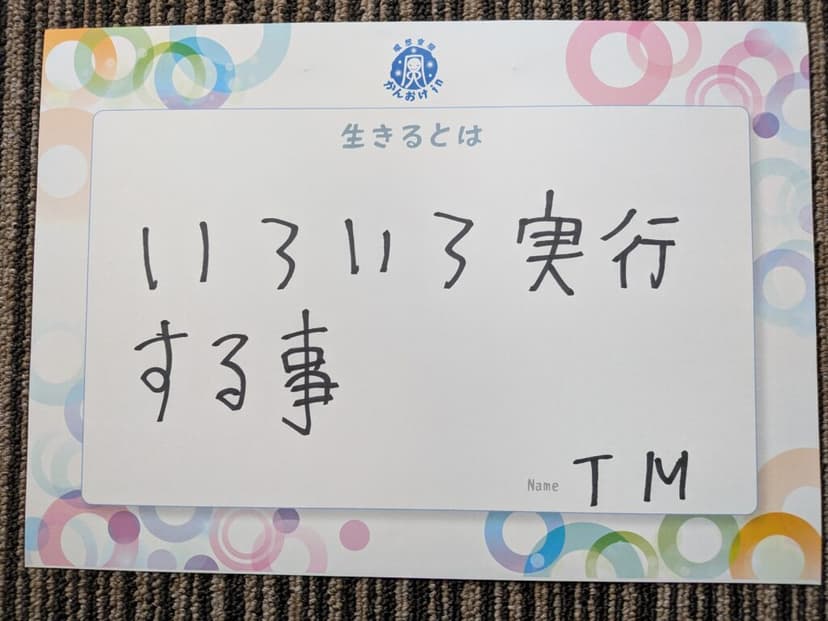 瞑想空間
かんおけin
生きるとは
いろいろ実行
する事
Name TM